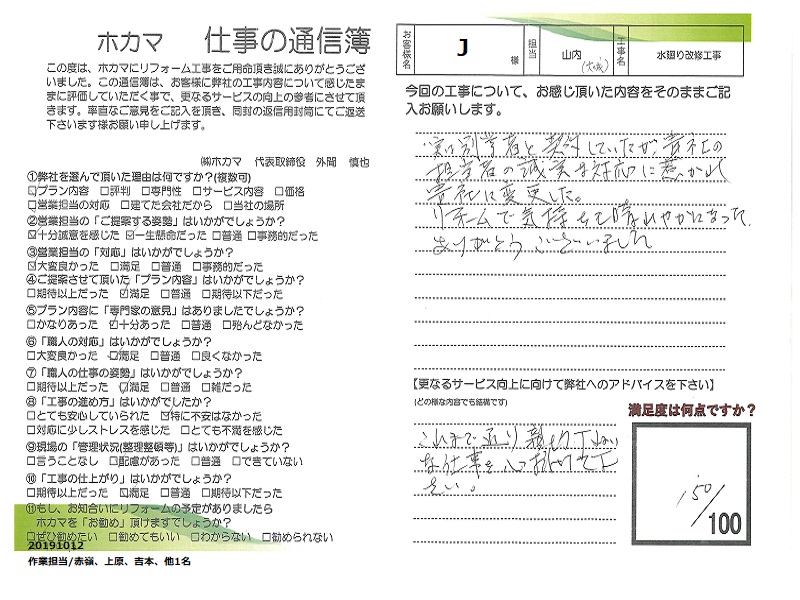 ホカマ 仕事の通信簿
この度は、ホカマにリフォーム工事をご用命頂き誠にありがとうござ
いました。この通信簿は、お客様に弊社の工事内容について感じたま
まに評価していただく事で、更なるサービスの向上の参考にさせて頂
きます。率直なご意見をご記入を頂き、同封の返信用封筒にてご返送
下さいます様お願い申し上げます。
㈱ホカマ 代表取締役 外間 慎也
①弊社を選んで頂いた理由は何ですか?(複数可)
☑プラン内容 □評判 □専門性 □サービス内容 □価格
☑営業担当の対応 □建てた会社だから □当社の場所
②営業担当の「ご提案する姿勢」はいかがでしょうか?
☑十分誠意を感じた ☑一生懸命だった □普通 □事務的だった
③営業担当の「対応」はいかがでしょうか?
☑大変良かった □満足 □普通 □事務的だった
④ご提案させて頂いた「プラン内容」はいかがでしょうか?
□期待以上だった ☑満足 □普通 □期待以下だった
⑤プラン内容に「専門家の意見」はありましたでしょうか?
□かなりあった ☑十分あった □普通 □殆んどなかった
⑥「職人の対応」はいかがでしょうか?
□大変良かった ☑満足 □普通 □良くなかった
⑦「職人の仕事の姿勢」はいかがでしょうか?
□期待以上だった ☑満足 □普通 □雑だった
⑧「工事の進め方」はいかがでしたか?
□とても安心していられた ☑特に不安はなかった
□対応に少しストレスを感じた □とても不満を感じた
⑨現場の「管理状況(整理整頓等)」はいかがでしょうか?
□言うことなし □配慮があった □普通 □できていない
⑩「工事の仕上がり」はいかがでしょうか?
□期待以上だった ☑満足 □普通 □期待以下だった
⑪もし、お知合いにリフォームの予定がありましたら
ホカマを「お勧め」頂けますでしょうか?
□ぜひ勧めたい □勧めてもいい □わからない □勧められない
20191012
作業担当/赤嶺、上原、吉本、他1名
お客様名 J 様 担当 山内 工事名 水廻り改修工事
今回の工事について、お感じ頂いた内容をそのままご記
入お願いします。
実は別業者と契約していたが、貴社の
担当者の誠実な対応に惹かれ
貴社に変更した。
リホームで気持ちも晴れやかになった。
ありがとうございました
【更なるサービス向上に向けて弊社へのアドバイスを下さい】
(どの様な内容でも結構です)
満足度は何点ですか?
これまで通り親切丁ねい
な仕事を心掛けて下
さい。
150/100